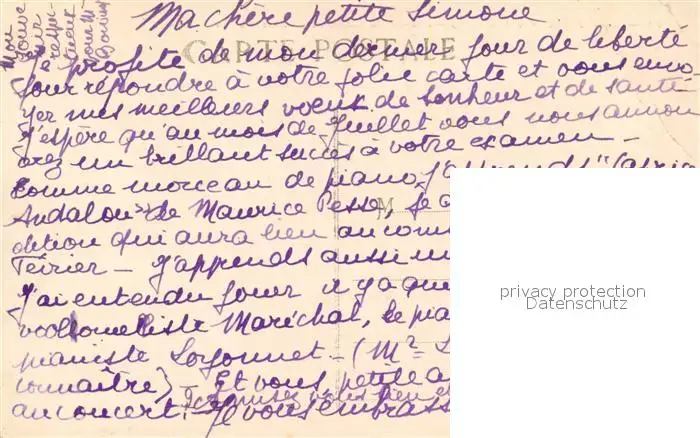 Ma chère petite Simone
CARTE POSTALE
Je profite de mon dernier jour de liberté
pour répondre à votre jolie carte et vous envo
yer mes meilleurs voeux de bonheur et de santé
J'espère qu'au mois de Juillet vous nous annon
cerez un brillant succès à votre examen —
Comme morceau de piano, j'apprends "Capric
Andalou" de Maurice Pesse, je
dition qui aura lieu au cours
Février — J'apprends aussi un
J'ai entendu jouer il y a que
violoncelliste Maréchal, le pia
pianiste Loyonnet — (Mr L
connaître) — Et vous petite a
au concert. — Je vous embrass
Mon
souve
nir
respec
tueux
pour M
M
privacy protection
Datenschutz